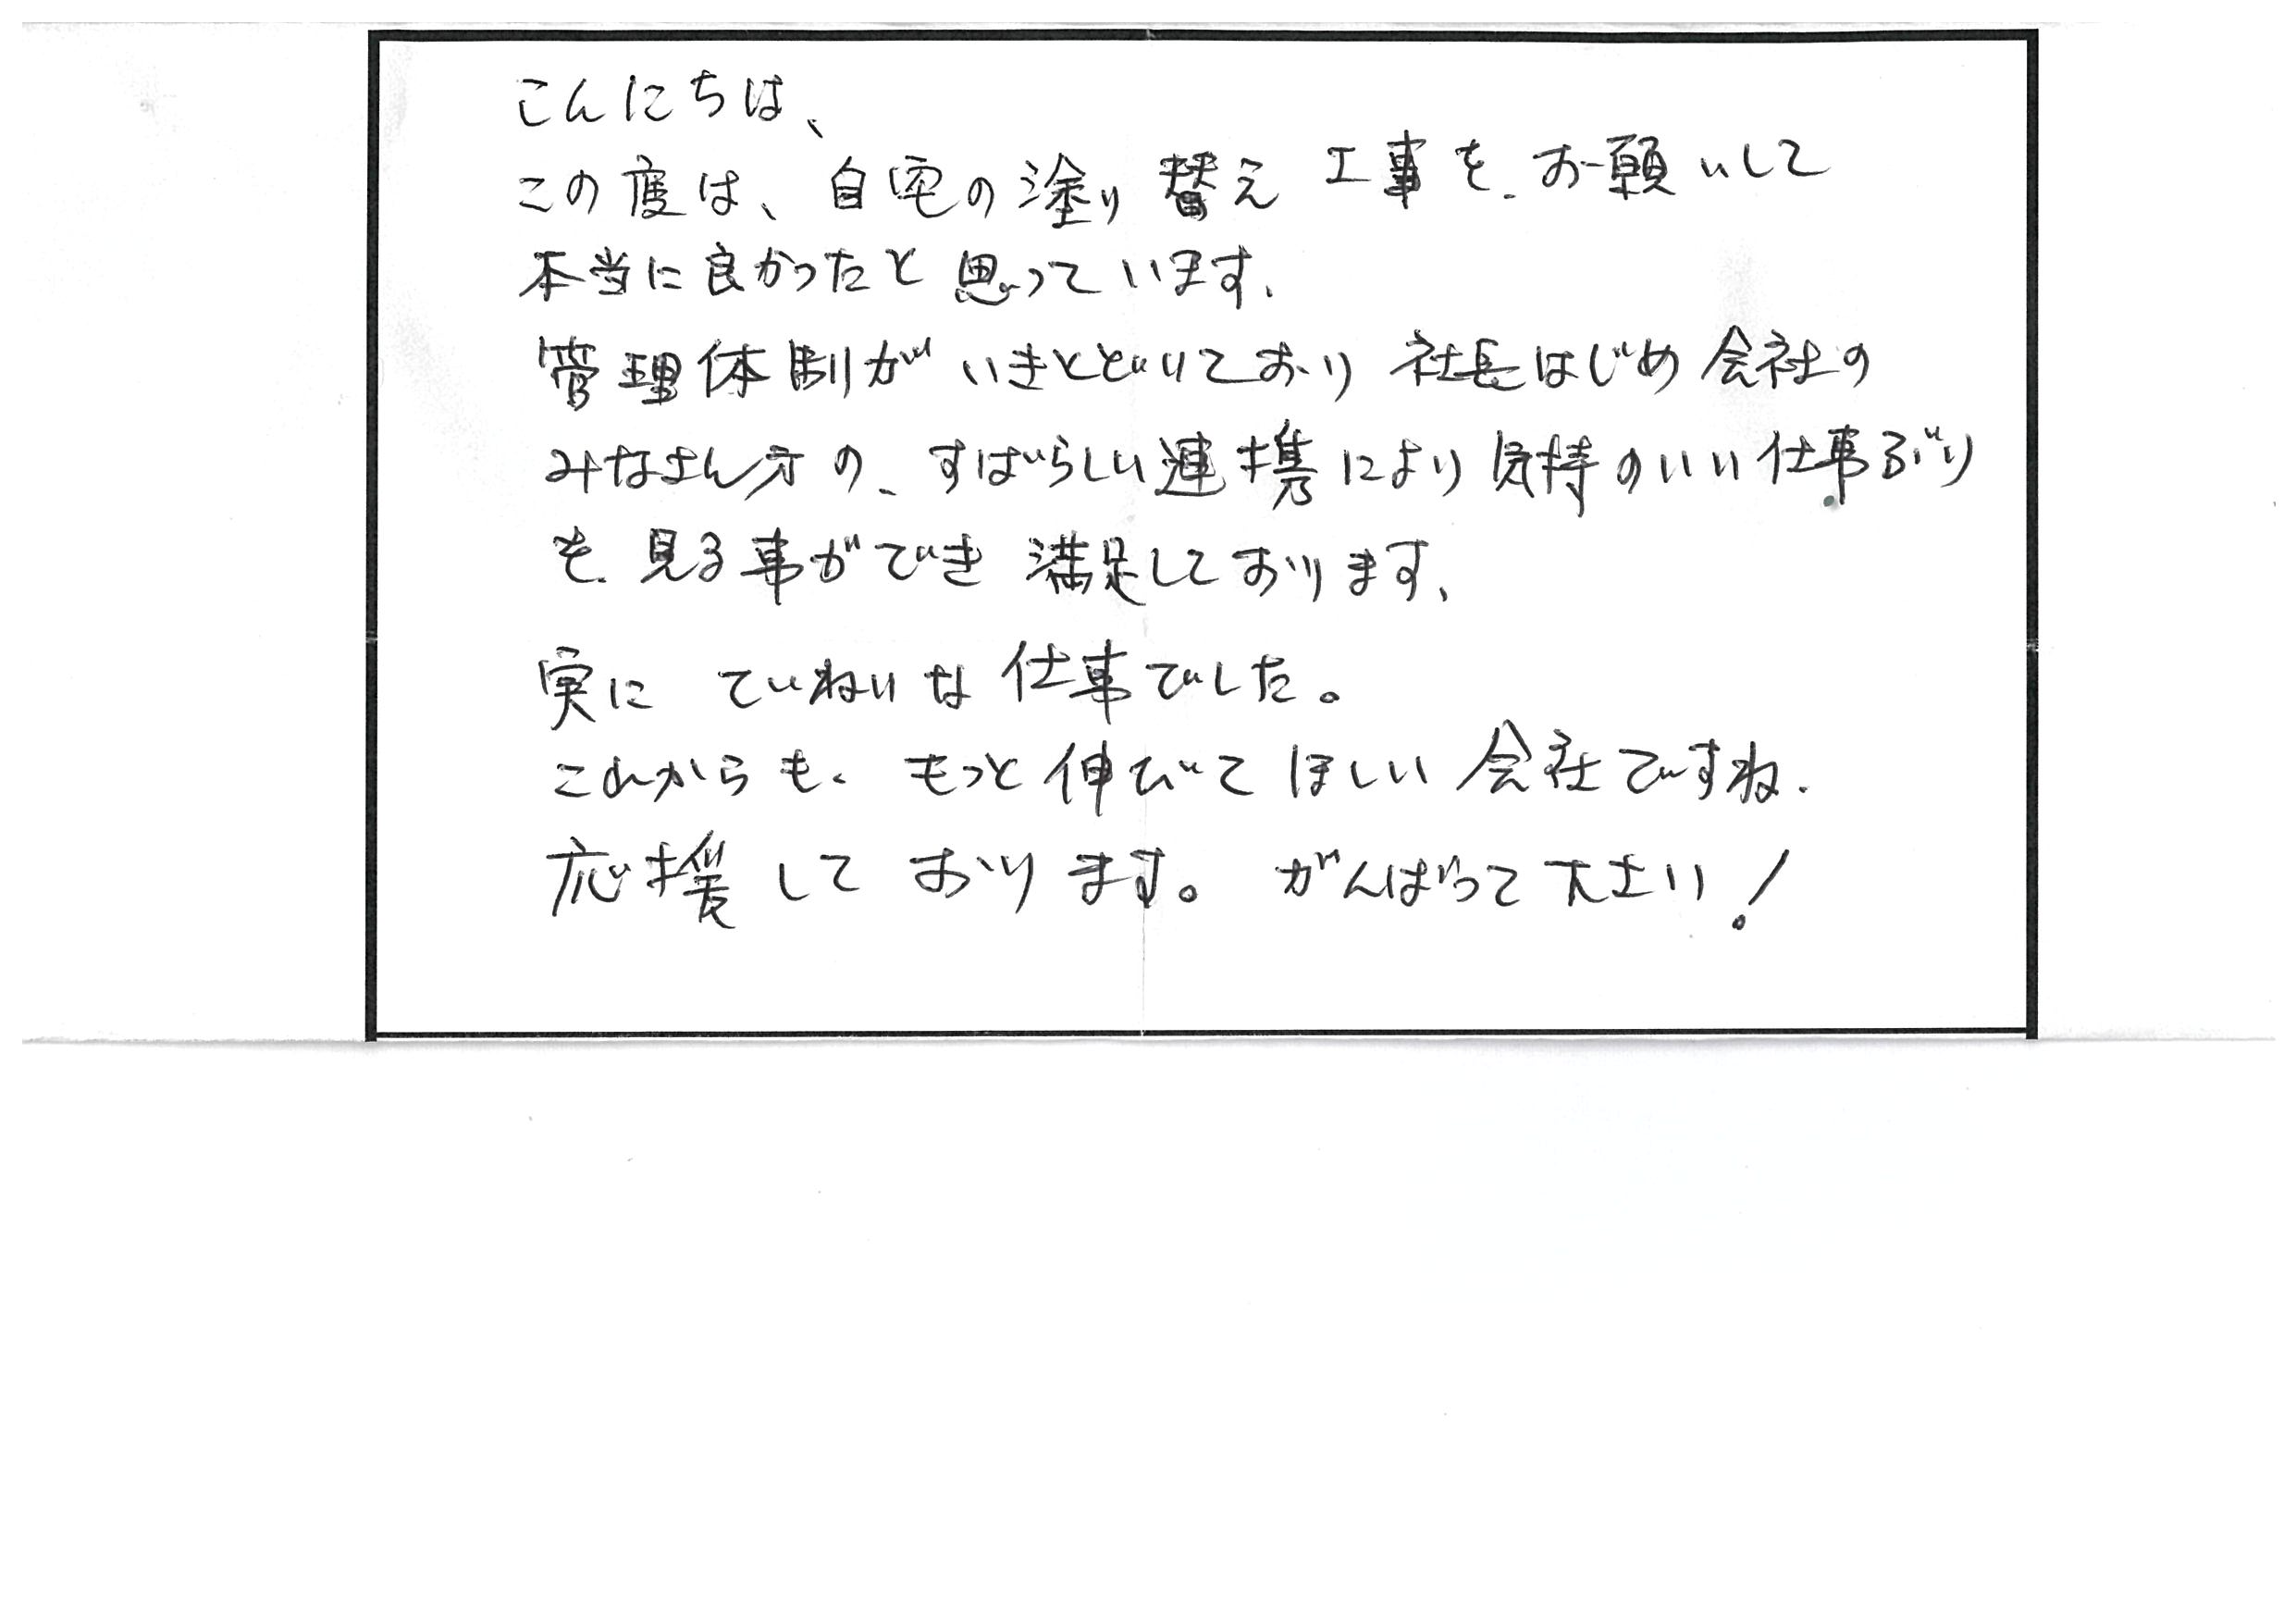 こんにちは、
この度は、自宅の塗り替え工事を、お願いして
本当に良かったと思っています.
管理体制がいきとどいており社長はじめ会社の
みなさん方の、すばらしい連携により気持のいい仕事ぶり
を見る事ができ満足しております、
実に ていねいな仕事でした。
これからも、もっと伸びてほしい会社ですね.
応援しております。がんばって下さい!